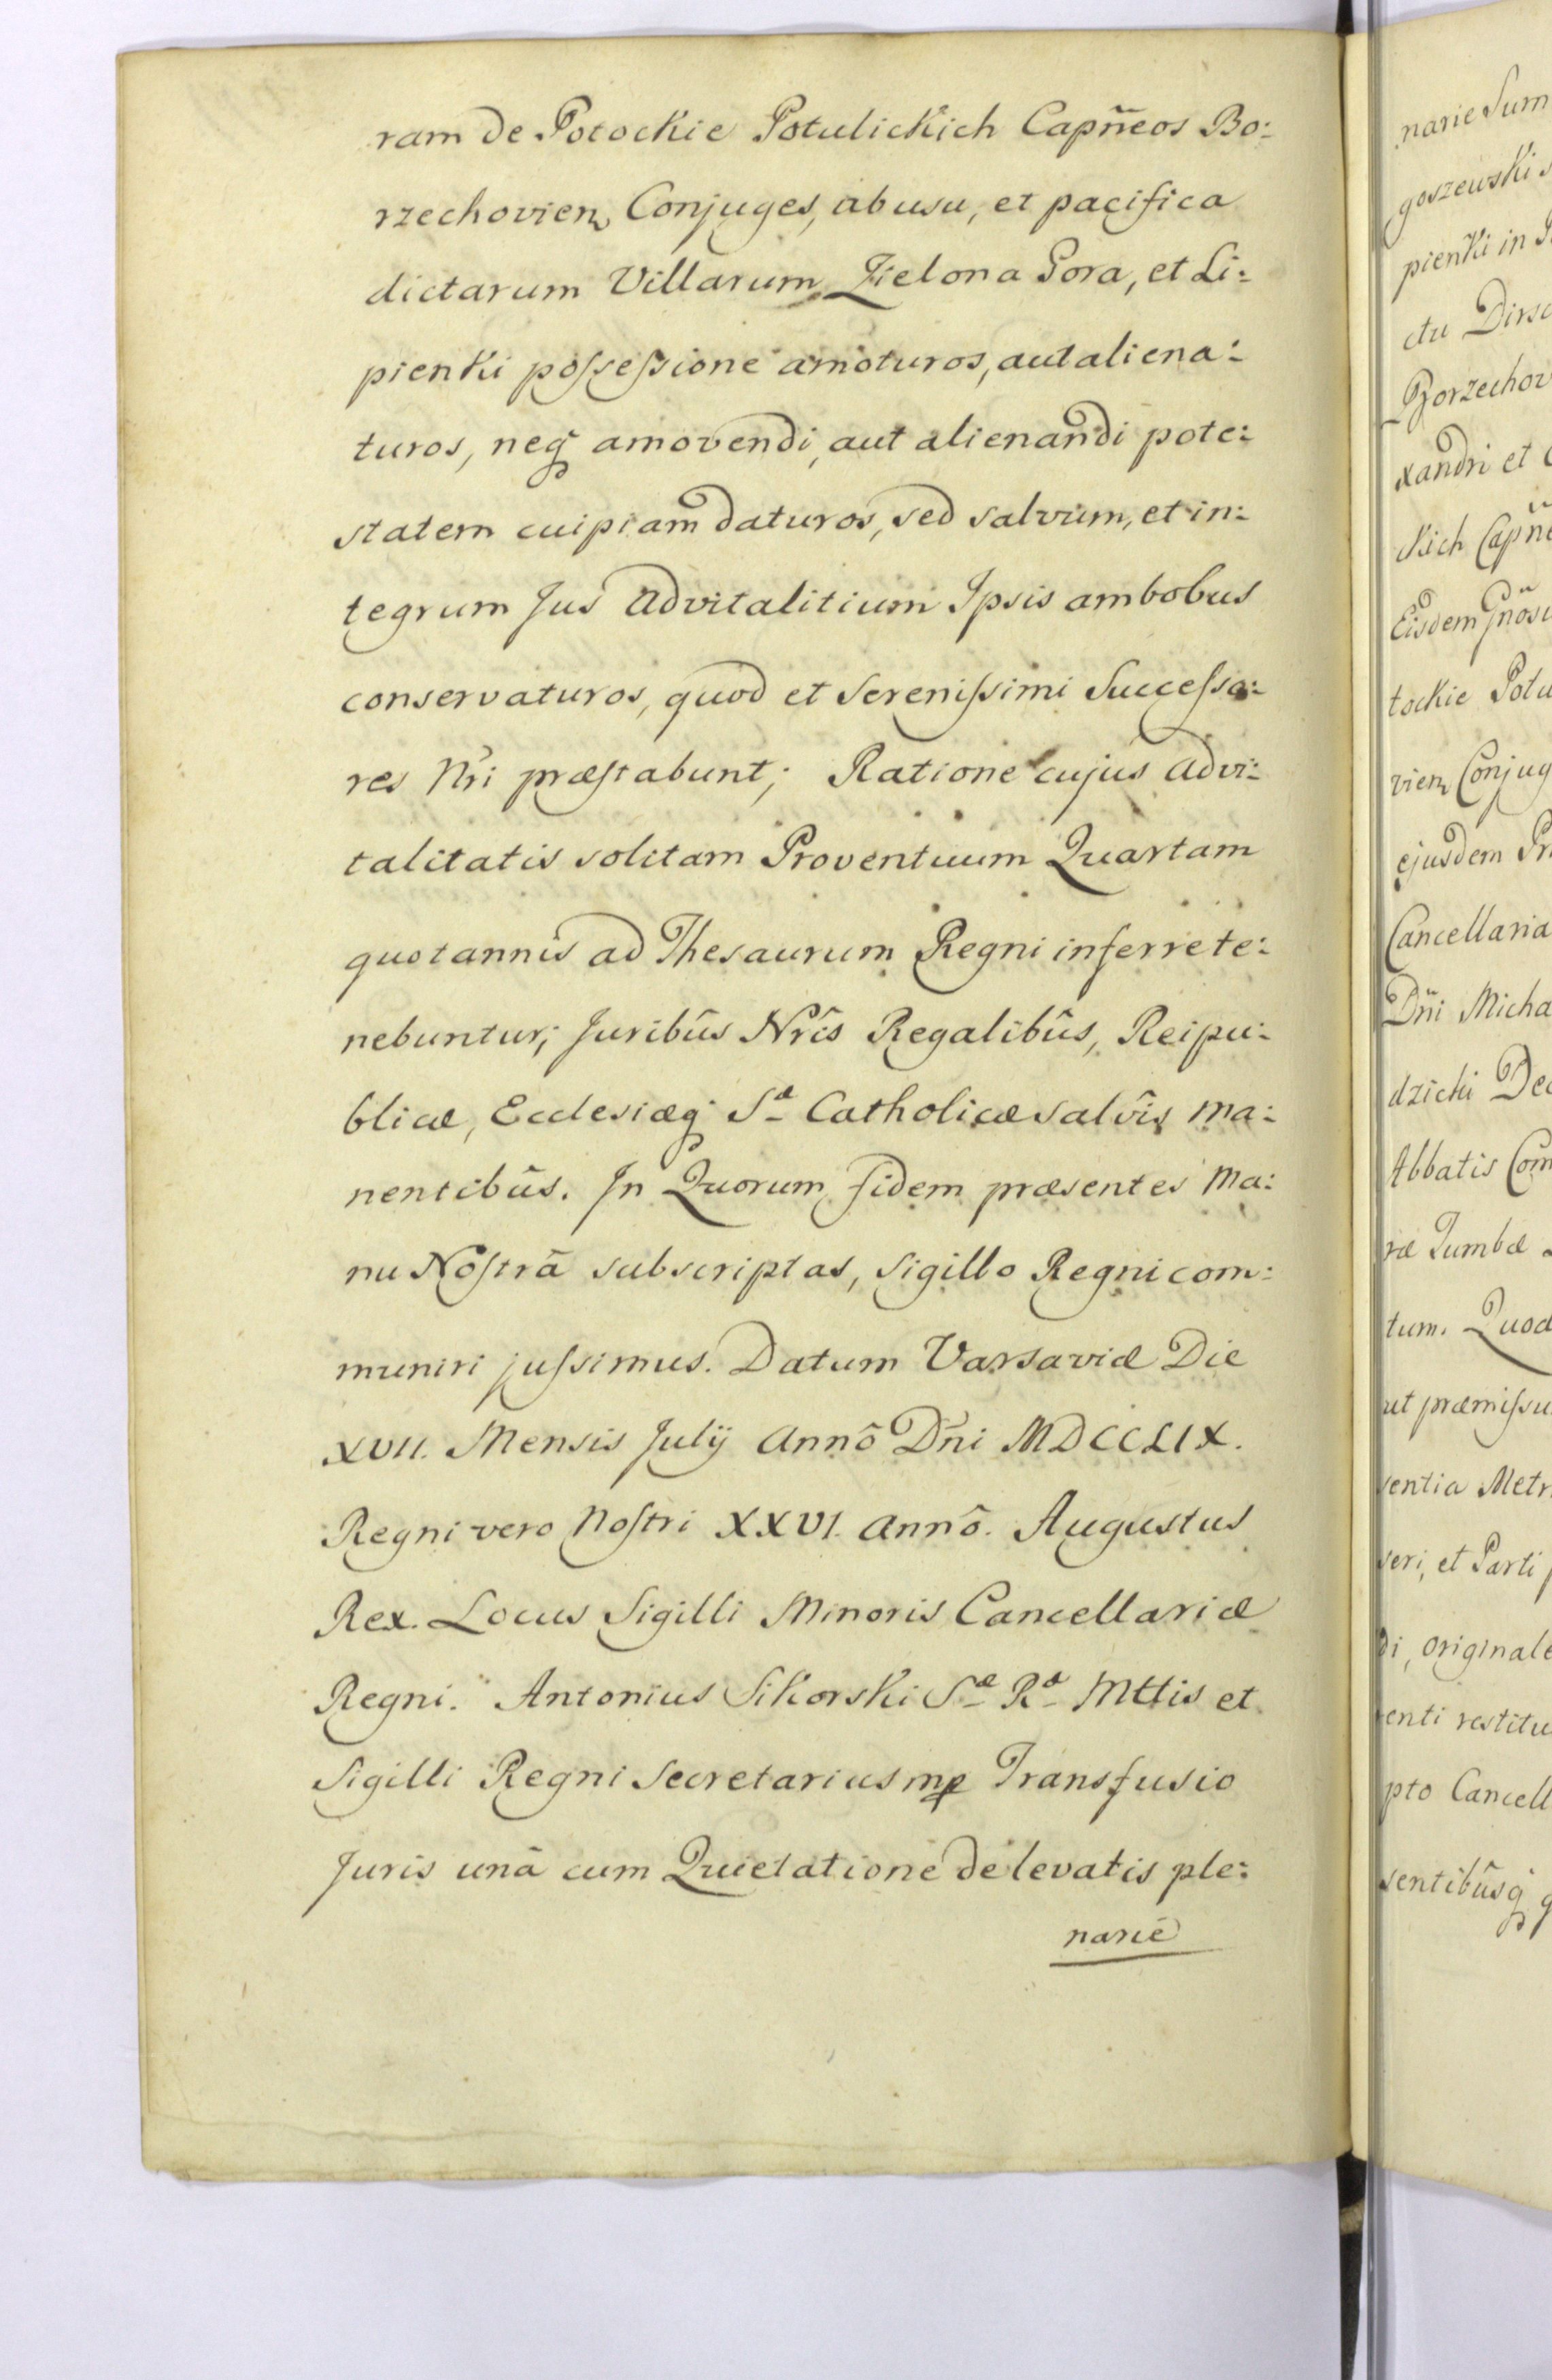 ram de Potockie Potulickich Capñeos Bo:
rzechovien, Conjuges, ab usu, et pacifica
dictarum Villarum Zielona Gora, et Li:
pienki possessione amoturos, aut aliena:
turos, neq amovendi, aut alienandi pote:
statem cuipiam daturos, sed salvum, et in:
tegrum Jus Advitalitium Ipsis ambobus
conservaturos, quod et Serenissimi Successo:
res Nri præstabunt; Ratione cujus Advi:
talitatis solitam Proventuum Quartam
quotannis ad Thesaurum Regni inferre te:
nebuntur; Juribûs Nrîs Regalibûs, Reipu:
blicæ, Ecclesiæq Sæ Catholicæ salvîs ma:
nentibûs. In Quorum fidem præsentes Ma:
nu Nostrâ subscriptas, Sigillo Regni com:
muniri jussimus. Datum Varsaviæ Die
XVII. Mensis Julij Annô Dñi MDCCLIX.
Regni vero Nostri XXVI. Annô. Augustus
Rex. Locus Sigilli Minoris Cancellariæ
Regni. Antonius Sikorski Sæ Ræ Mttis et
Sigilli Regni Secretarius mp Transfusio
Juris unâ cum Quietatione de levatis ple:
narie
narie Sum
goszewski
pienki in
ctu Dirs
Borzechov
xandri et
ckich Capñe
Eisdem Gñosi
tockie Potu
vien, Conjug
ejusdem
Cancellaria
Dñi Micha
dzichi Dec
Abbatis Com
ræ Tumbæ
tum. Quod
ut præmissu
sentia Metr
seri, et Parti
di, Originale
enti restitu
pto Cancell
sentibûsq